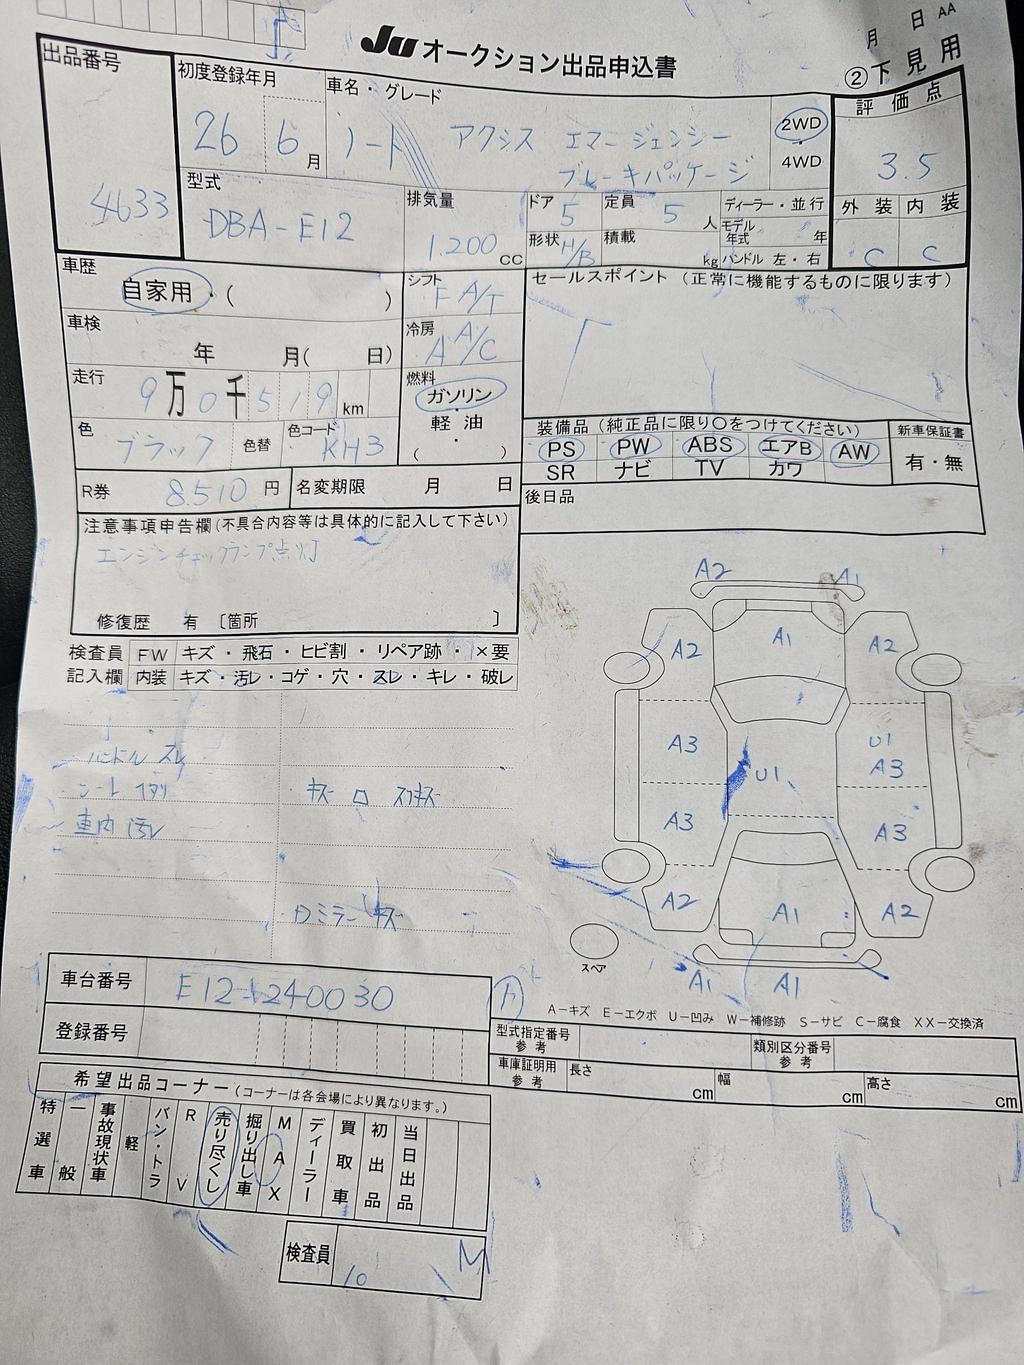 月 日 AA
Ju オークション出品申込書
②下見用
出品番号
4633
初度登録年月
26 6月
車名・グレード
ノート アクシス エマージェンシー
ブレーキパッケージ
2WD
4WD
評価点
3.5
型式
DBA-E12
排気量
1.200 CC
ドア 5
定員 5 人
形状 H/B
積載 kg
ディーラー・並行
モデル年式 年
ハンドル 左・右
外装 内装
C C
車歴
自家用・( )
シフト
F A/T
セールスポイント (正常に機能するものに限ります)
車検
年 月( 日)
冷房
A A/C
走行
9万0千519km
燃料
ガソリン
軽油
・
( )
色
ブラック
色替
色コード
KH3
装備品 (純正品に限り〇をつけてください)
PS PW ABS エアB AW
SR ナビ TV カワ
新車保証書
有・無
R券 8.510円
名変期限 月 日
後日品
注意事項申告欄(不具合内容等は具体的に記入して下さい)
エンジンチェックランプ点灯
修復歴 有 〔箇所 〕
検査員 FW キズ・飛石・ヒビ割・リペア跡・×要
記入欄 内装 キズ・汚レ・コゲ・穴・スレ・キレ・破レ
A2 A1
A2 A1 A2
A3 U1
U1 A3
A3 A3
A2 A1 A2
A1 A1
スペア
ハンドル スレ
シート
車内 汚レ
キズ ロ スリキズ
ミラー キズ
車台番号 E12-240030
登録番号
A-キズ E-エクボ U-凹み W-補修跡 S-サビ C-腐食 XX-交換済
型式指定番号
参考
類別区分番号
参考
車庫証明用
参考
長さ cm
幅 cm
高さ cm
希望出品コーナー(コーナーは各会場により異なります。)
特選車
一般
事故現状車
軽
バン・トラ
RV
売り尽くし
掘り出し車
MAX
ディーラー
買取車
初出品
当日出品
検査員
10 M